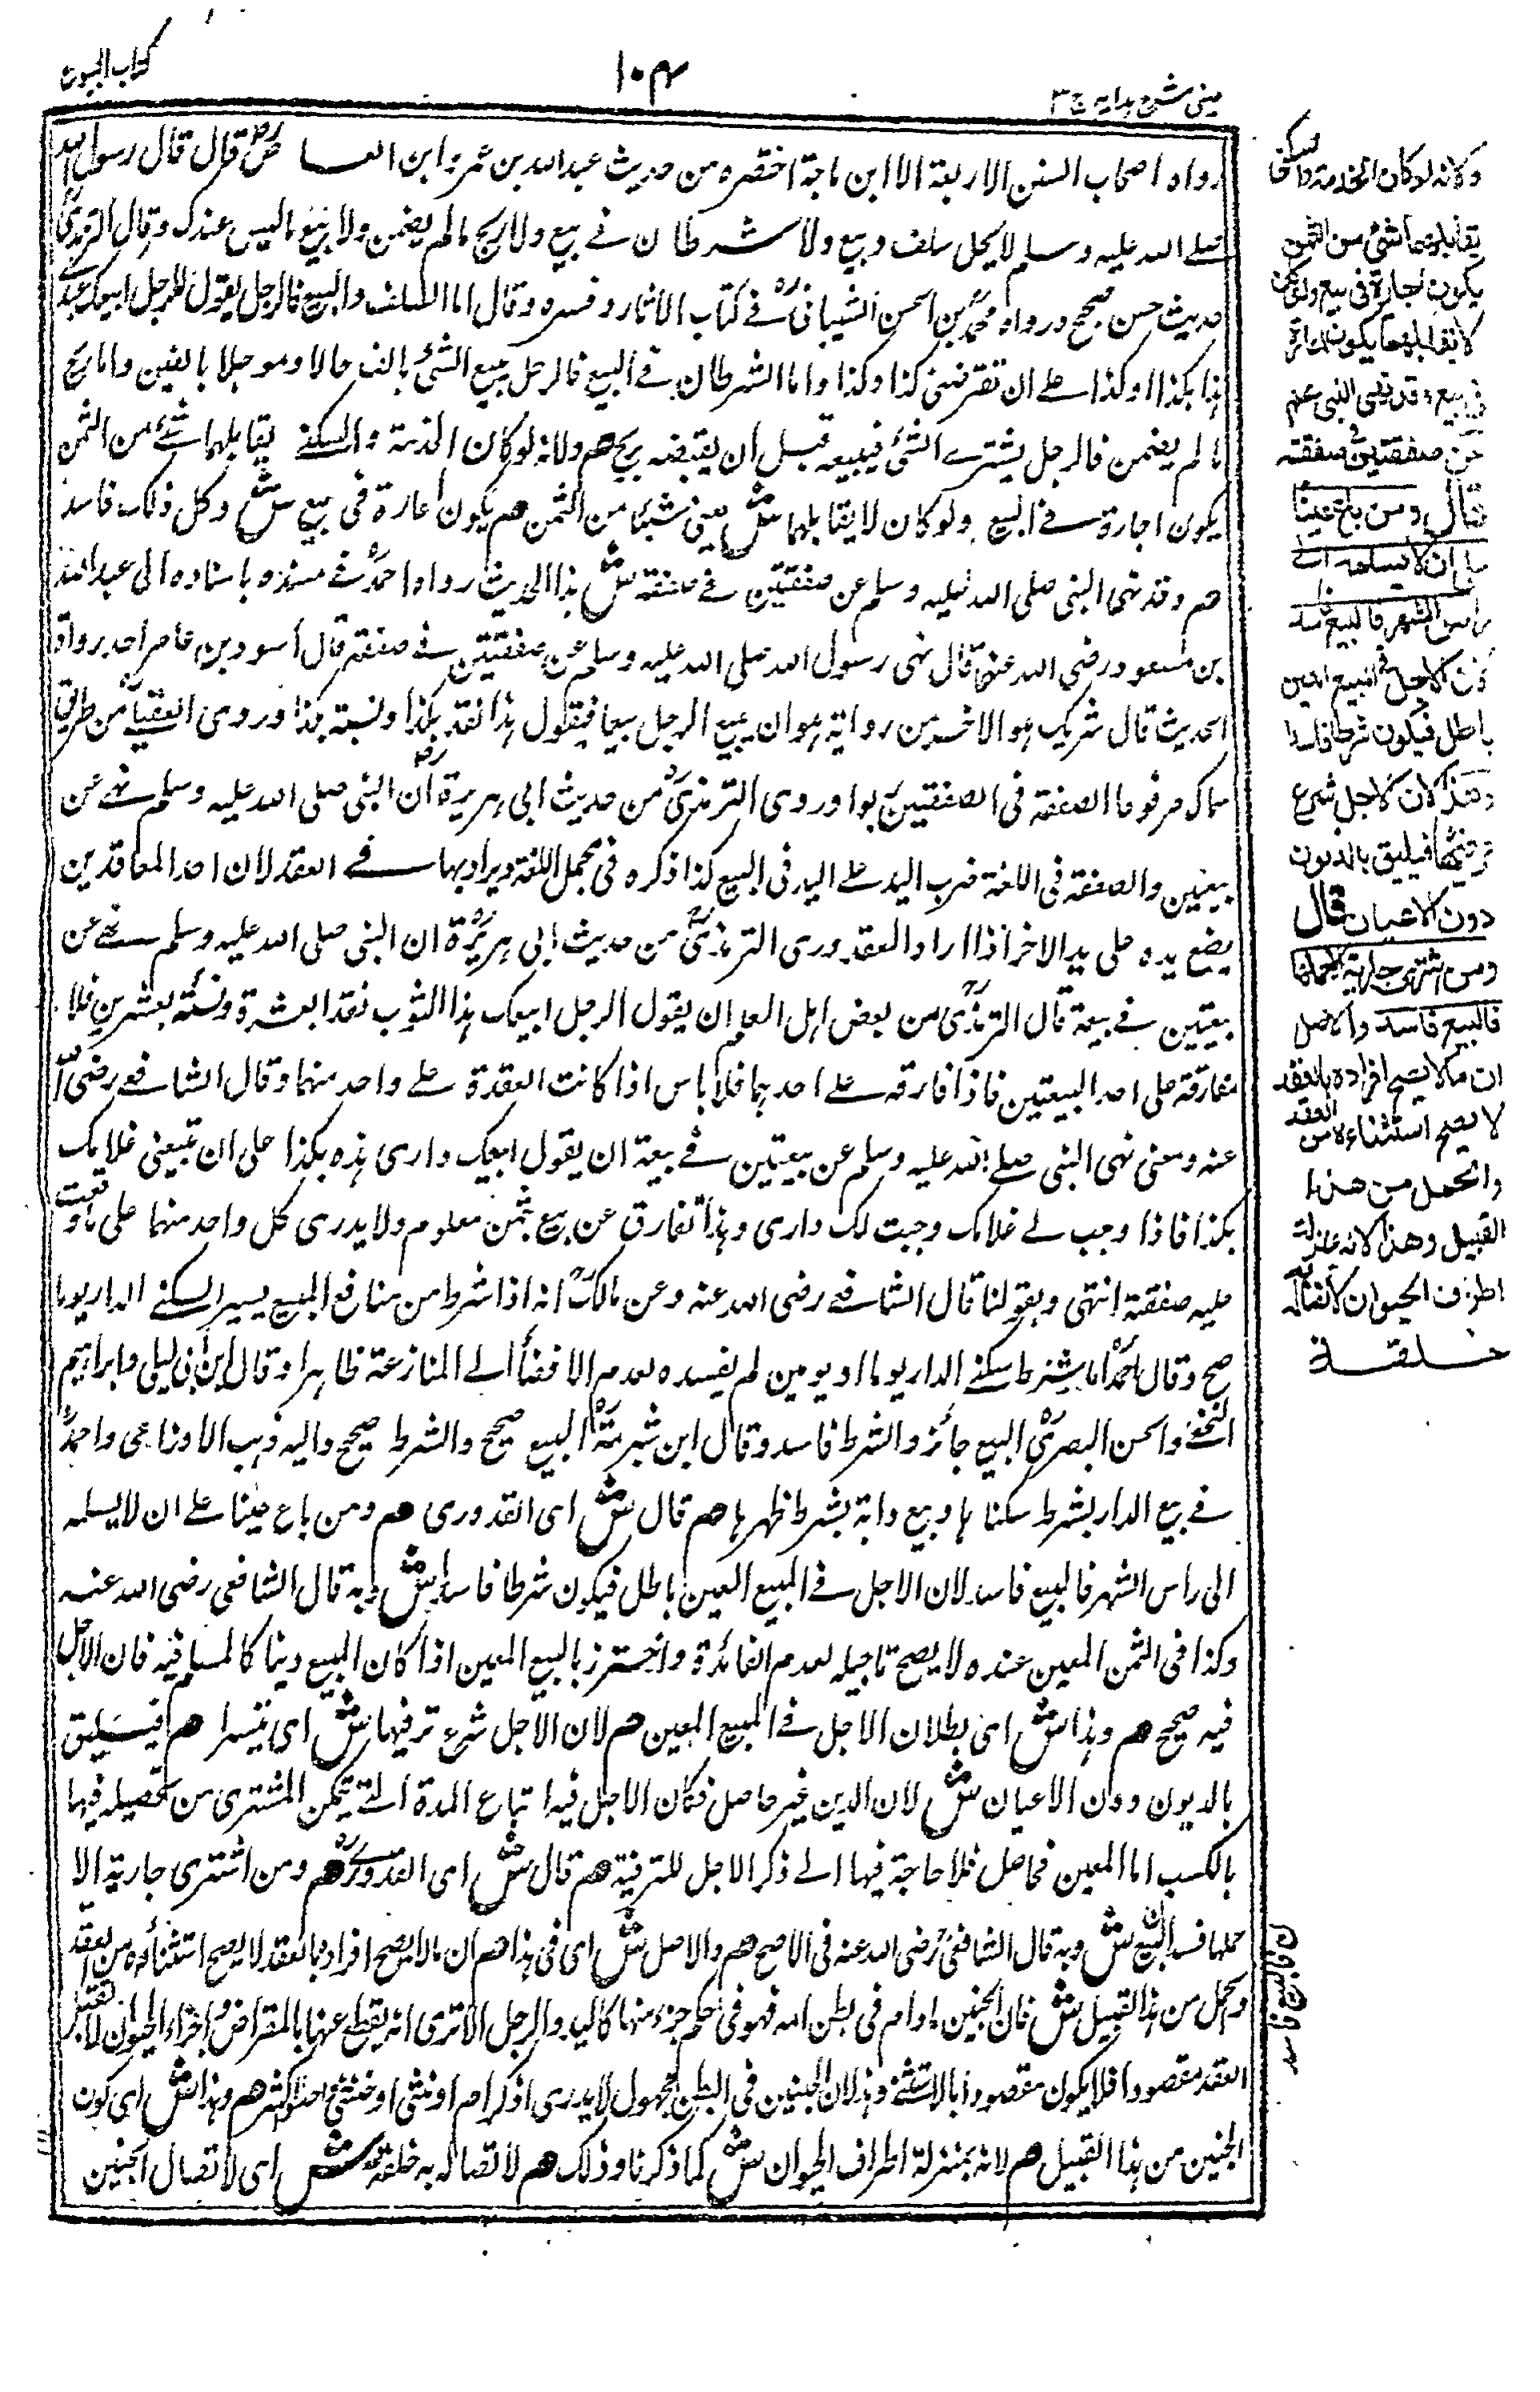 عینی شرح ہدایہ ج ۳
۱۰۴
کتاب البیوع
رواه اصحاب السنن الاربعة الا ابن ماجة اختصره من حديث عبد الله بن عمرو ابن العاص قال قال رسول الله
صلے الله عليه وسلم لا يحل سلف وبيع ولا شرطان فے بيع ولا ربح ما لم يضمن ولا بيع ما ليس عندك وقال الترمذی
حديث حسن صحيح ورواه محمد بن الحسن الشيبانی فے كتاب الآثار وفسره وقال اما السلف والبيع فالرجل يقول للرجل ابيعك عبدی
هذا بكذا وكذا علے ان تقرضنی كذا وكذا واما الشرطان فے البيع فالرجل يبيع الشئ بالف حالا وموجلا بالفين واما ربح
ما لم يضمن فالرجل يشترے الشئ فيبيعه قبل ان يقبضه بربح هم ولانه لو كان الخدمة والسكنے يقابلهما شئے من الثمن
يكون اجارة فے البيع ولو كان لا يقابلهما ش يعنی شيئا من الثمن هم يكون اعارة فی بيع ش وكل ذلك فاسد
هم وقد نهی النبی صلی الله عليه وسلم عن صفقتين فے صفقة ش هذا الحديث رواه احمد فے مسنده باسناده الی عبد الله
بن مسعود رضی الله عنه قال نهی رسول الله صلی الله عليه وسلم عن صفقتين فے صفقة قال اسود بن عامر احد رواة
الحديث قال شريك هو الاخد من رواية هو ان يبيع الرجل بيعا فيقول هذا نقد بكذا ونسية بكذا وروی العقيلی من طريق
سماك مرفوعا الصفقة فی الصفقتين ربوا وروی الترمذی من حديث ابی هريرة ان النبی صلی الله عليه وسلم نهے عن
بيعتين والصفقة فی اللغة ضرب اليد علے اليد فی البيع كذا ذكره فی مجمل اللغة ويراد بها فے العقد لان احد المعاقدين
يضع يده علی يد الآخر اذا اراد العقد وروی الترمذی من حديث ابی هريرة ان النبی صلی الله عليه وسلم نهے عن
بيعتين فے بيعة قال الترمذی من بعض اهل العلم ان يقول الرجل ابيعك هذا الثوب نقدا بعشرة ونسئة بعشرين فلا
مفارقة علی احد البيعتين فاذا فارقه علے احدهما فلا باس اذا كانت العقدة علے واحد منهما وقال الشافعے رضی الله
عنه ومعنی نهی النبی صلے الله عليه وسلم عن بيعتين فے بيعة ان يقول ابيعك داری هذه بكذا علی ان تبيعنی غلامك
بكذا فاذا وجب لے غلامك وجبت لك داری وهذا تفارق عن بيع بثمن معلوم ولا يدری كل واحد منهما علی ما وقعت
عليه صفقة انتهی وبقولنا قال الشافعے رضی الله عنه وعن مالك انه اذا شرط من منافع المبيع يسيرا لسكنے الدار يوما
صح وقال احمد اما بشرط سكنے الدار يوما او يومين لم يفسده لعدم الافضأ الے المنازعة ظاهرا وقال ابن ابی ليلی وابراهيم
النخعے والحسن البصری البيع جائز والشرط فاسد وقال ابن شبرمة البيع صحيح والشرط صحيح واليه ذهب الاوزاعی واحمد
فے بيع الدار بشرط سكناها وبيع دابة بشرط ظهرها هم قال ش ای القدوری هم ومن باع عينا علے ان لا يسلمه
الی راس الشهر فالبيع فاسد لان الاجل فے المبيع العين باطل فيكون شرطا فاسدا ش وبه قال الشافعی رضی الله عنه
وكذا فی الثمن المعين عنده لا يصح تاجيله لعدم الفائدة واحترز بالبيع المعين اذا كان المبيع دينا كالمسلم فيه فان الاجل
فيه صحيح هم وهذا ش ای بطلان الاجل فے المبيع المعين هم لان الاجل شرع ترفيها ش ای تيسرا هم فيليق
بالديون دون الاعيان ش لان الدين غير حاصل فكان الاجل فيه اتباع المدة التے يتمكن المشتری من تحصيله فيها
بالكسب اما المعين فحاصل فلا حاجة فيها الے ذكر الاجل للترفية هم قال ش ای القدوری هم ومن اشتری جارية الا
حملها فسد البيع ش وبه قال الشافعی رضی الله عنه فی الاصح هم والاصل ش ای فی هذا هم ان ما لا يصح افراده بالعقد لا يصح استثناؤه من العقد
والحمل من هذا القبيل ش فان الجنين ما دام فی بطن امه فهو فی حكم جزء منها كاليد والرجل الا تری انه يقطع عنها بالمقراض واجزاء الحيوان لا تقبل
العقد مقصودا فلا يكون مقصودا بالاستثنے وهذا لان الجنين فی البطن مجهول لا يدری اذكر ام انثی او خنثی احد او اكثر هم وهذا ش ای كون
الجنين من هذا القبيل هم لانه بمنزلة اطراف الحيوان ش كما ذكرنا وذلك هم لاتصاله به خلقة ش ای لاتصال الجنين
ولانه لو كان الخدمة والسكنی
يقابلهما شئ من الثمن
يكون اجارة فی بيع ولو كان
لا يقابلهما يكون اعارة
فی بيع وقد نهی النبی عم
عن صفقتين فی صفقة
قال ومن باع عينا
علی ان لا يسلمه الے
راس الشهر فالبيع فاسد
لان الاجل فی المبيع العين
باطل فيكون شرطا فاسدا
وهذا لان الاجل شرع
ترفيها فيليق بالديون
دون الاعيان قال
ومن اشتری جارية الا حملها
فالبيع فاسد والاصل
ان ما لا يصح افراده بالعقد
لا يصح استثناءه من العقد
والحمل من هذا
القبيل وهذا لانه بمنزلة
اطراف الحيوان لاتصاله به
خلقة